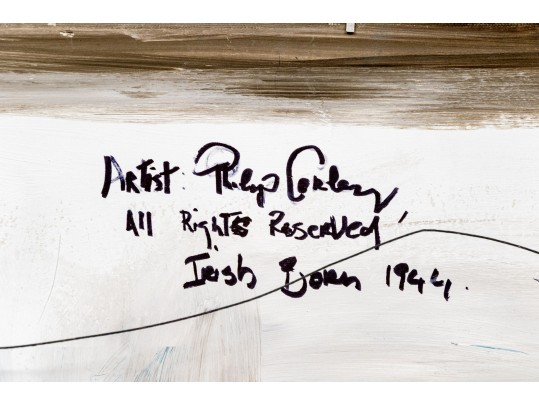 Artist: Philip
All Rights Reserved
Irish Born 1944.